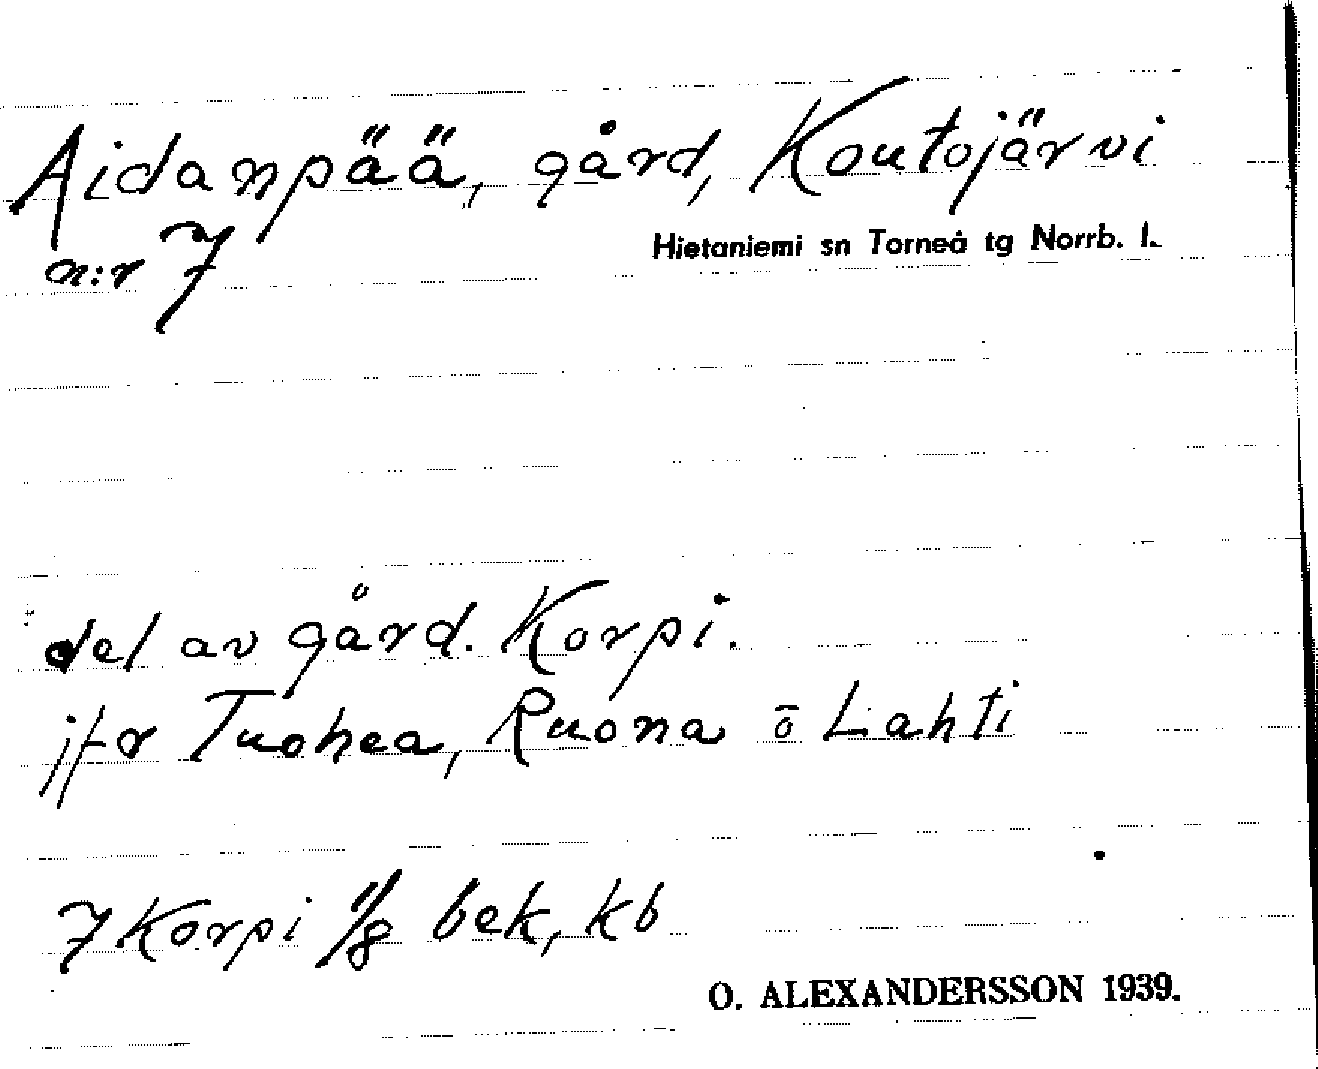 Aidanpää, gård, Koutojärvi
n:r 7
Hietaniemi sn Torneå tg Norrb. l.
del av gård. Korpi.
jfr Tuohea, Ruona ō Lahti
7 Korpi 1/8 bek, kb
O. ALEXANDERSSON 1939.